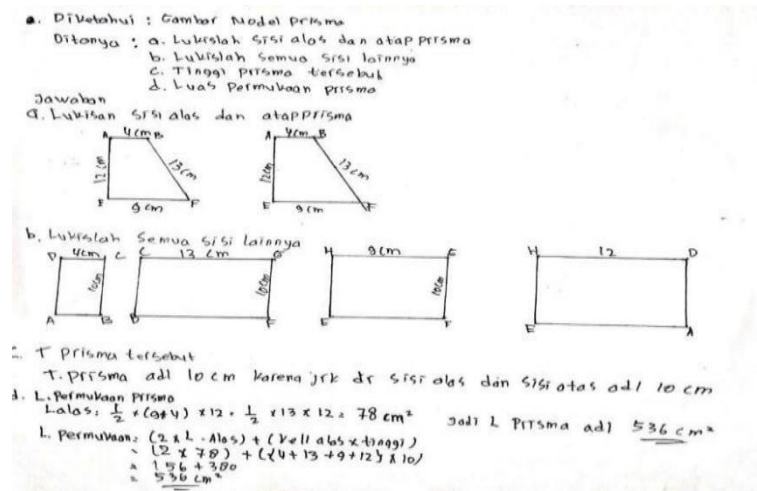 a. Diketahui : Gambar Model prisma
Ditanya : a. Lukislah sisi alas dan atap prisma
b. Lukislah semua sisi lainnya
c. Tinggi prisma tersebut
d. Luas permukaan prisma
Jawaban
a. Lukisan sisi alas dan atap prisma
A 4 cm B
12 cm
13 cm
E 9 cm F
A 4 cm B
12 cm
13 cm
E 9 cm F
b. Lukislah semua sisi lainnya
D 4 cm C
10 cm
A B
C 13 cm G
10 cm
B F
H 9 cm G
10 cm
E F
H 12 D
E A
c. T prisma tersebut
T. prisma adl 10 cm karena jrk dr sisi alas dan sisi atas adl 10 cm
d. L. permukaan prisma
L alas = 1/2 x (9+4) x 12 = 1/2 x 13 x 12 = 78 cm²
L. permukaan = (2 x L. Alas) + (Kell alas x tinggi)
= (2 x 78) + ((4 + 13 + 9 + 12) x 10)
= 156 + 380
= 536 cm²
Jadi L prisma adl 536 cm²